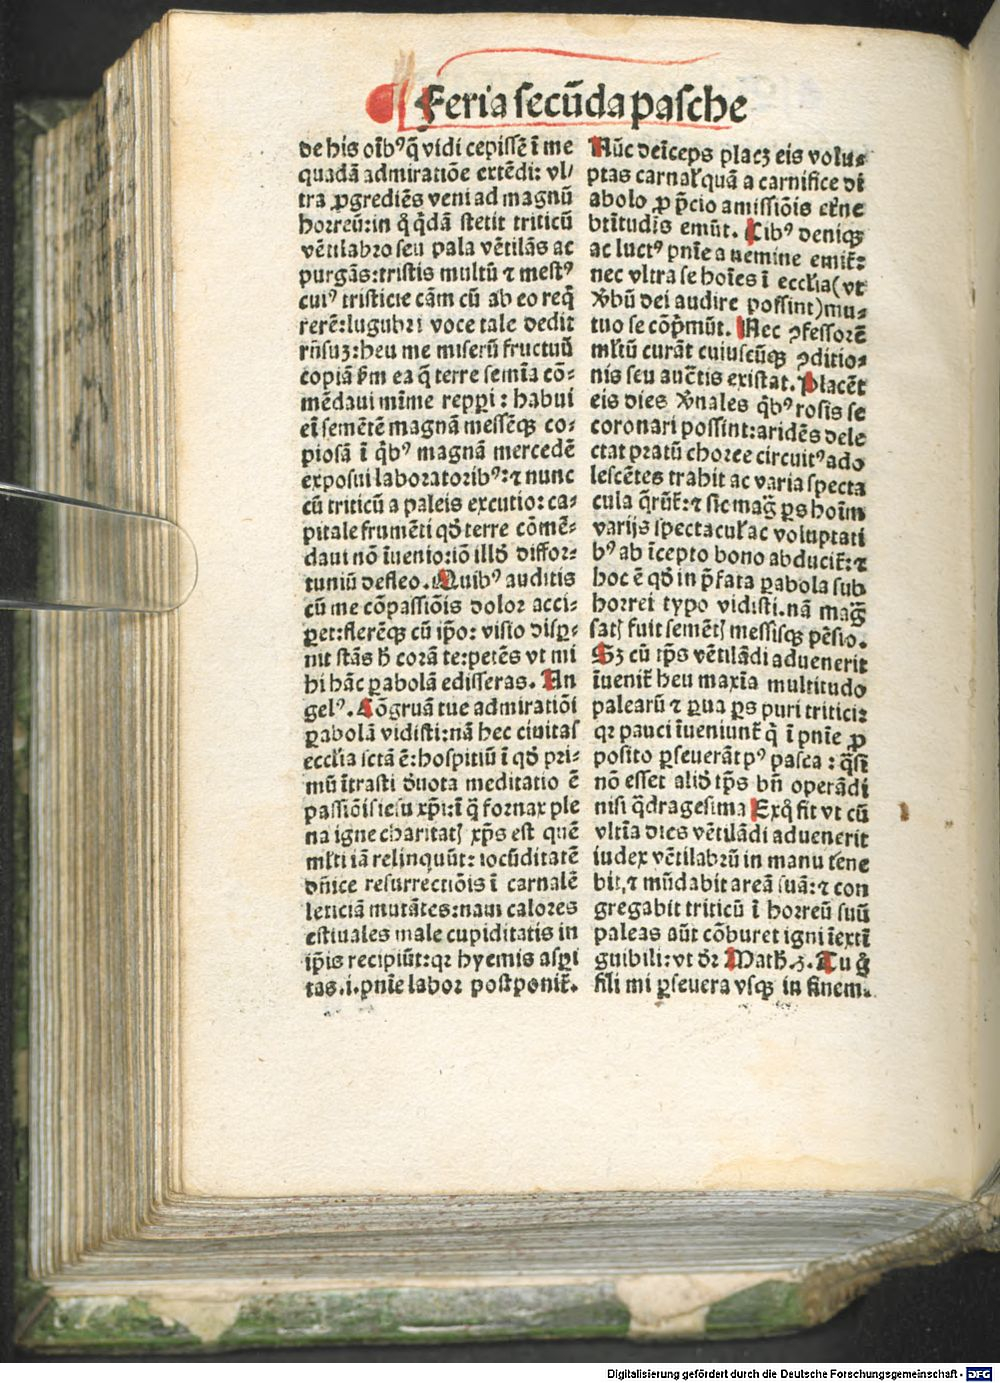 Feria secūda pasche
de his oīb⁹ q̄ vidi cepissē ī me
quadā admiratiōe extēdi: vl/
tra ꝓgrediēs veni ad magnū
horreū: in q̊ q̄dā stetit triticū
vētilabro seu pala vētilās ac
purgās: tristis multū ⁊ mest⁹
cui⁹ tristicie cām cū ab eo reqͥ
rerē: lugubri voce tale dedit
rn̄suꝫ: heu me miserū fructuū
copiā ẜm ea q̄ terre semīa cō-
mēdaui mīme repperi: habui
eī semētē magnā messēqꝫ co-
piosā ī qͥb⁹ magnā mercedē
exposui laboratorib⁹: ⁊ nunc
cū triticū a paleis excutio: ca-
pitale frumēti qd̄ terre cōmē-
daui nō īuenio: iō illd̄ diffor-
tuniū defleo. Quib⁹ auditis
cū me cōpassiōis dolor acci-
ꝑet: flerēqꝫ cū ip̄o: visio disꝑ-
uit stās h̄ corā te: petēs vt mi
hi hāc ꝑabolā edisseras. An
gel⁹. Cōgruā tue admiratiōi
ꝑabolā vidisti: nā hec ciuitas
eccl̄ia sctā ē: hospitiū ī qd̄ pri-
mū ītrasti d̄uota meditatio ē
passiōis iesu xp̄i: ī q̄ fornax ple
na igne charitatꝭ xp̄s est quē
ml̄ti iā relinquūt: iocūditatē
dn̄ice resurrectiōis ī carnalē
leticiā mutātes: nam calores
estiuales male cupiditatis in
ip̄is recipiūt: qꝛ hyemis asꝑi
tas .i. pn̄ie labor postponit̄.
Nūc deīceps placꝫ eis volu-
ptas carnal̄ quā a carnifice di
abolo ꝓ p̄cio amissiōis et̄ne
btītudīs emūt. Cib⁹ deniqꝫ
ac luct⁹ pn̄ie a nemine emit̄:
nec vltra se hoīes ī eccl̄ia (vt
v̄bū dei audire possint) mu-
tuo se cōp̄mūt. Nec ꝯfessorē
ml̄tū curāt cuiuscūqꝫ ꝯditio-
nis seu auctīs existat. Placēt
eis dies v̄nales qͥb⁹ rosis se
coronari possint: aridēs dele
ctat pratū choree circuit⁹ ado
lescētes trahit ac varia specta
cula q̄rūt̄: ⁊ sic maḡ ps hoīm
varijs spectacul̄ ac voluptati
b⁹ ab īcepto bono abducit̄: ⁊
hoc ē qd̄ in p̄fata ꝑabola sub
horrei typo vidisti. nā maḡ
satꝭ fuit semētꝭ messisqꝫ pēsio.
Sꝫ cū tp̄s vētilādi aduenerit
īuenit̄ heu maxīa multitudo
palearū ⁊ ꝑua ps puri tritici:
qꝛ pauci īueniunt̄ q̇ ī pn̄ie ꝓ
posito ꝑseuerāt p⁹ pasca: q̄si
nō esset alid̄ tp̄s bn̄ operādi
nisi q̄dragesima Exq̊ fit vt cū
vltīa dies vētilādi aduenerit
iudex vētilabrū in manu tene
bit, ⁊ mūdabit areā suā: ⁊ con
gregabit triticū ī horreū suū
paleas aūt cōburet igni īextī
guibili: vt d̄r Math̄. 3. Tu g̊
fili mi ꝑseuera vsqꝫ in finem.
Digitalisierung gefördert durch die Deutsche Forschungsgemeinschaft - DFG